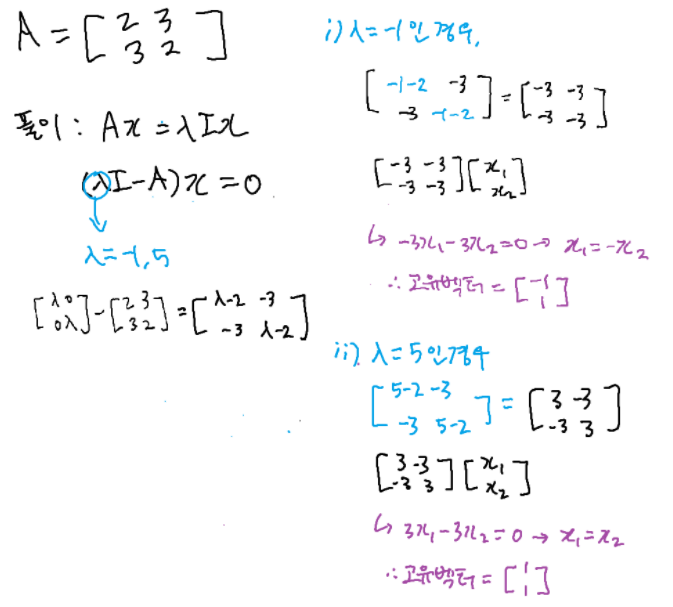 A = [2 3; 3 2]
풀이 : Ax = λIx
(λI-A)x = 0
λ = -1, 5
[λ 0; 0 λ] - [2 3; 3 2] = [λ-2 -3; -3 λ-2]
i) λ = -1인 경우,
[-1-2 -3; -3 -1-2] = [-3 -3; -3 -3]
[-3 -3; -3 -3][x₁; x₂]
↳ -3x₁-3x₂=0 → x₁=-x₂
∴ 고유벡터 = [-1; 1]
ii) λ = 5인경우
[5-2 -3; -3 5-2] = [3 -3; -3 3]
[3 -3; -3 3][x₁; x₂]
↳ 3x₁-3x₂=0 → x₁=x₂
∴ 고유벡터 = [1; 1]